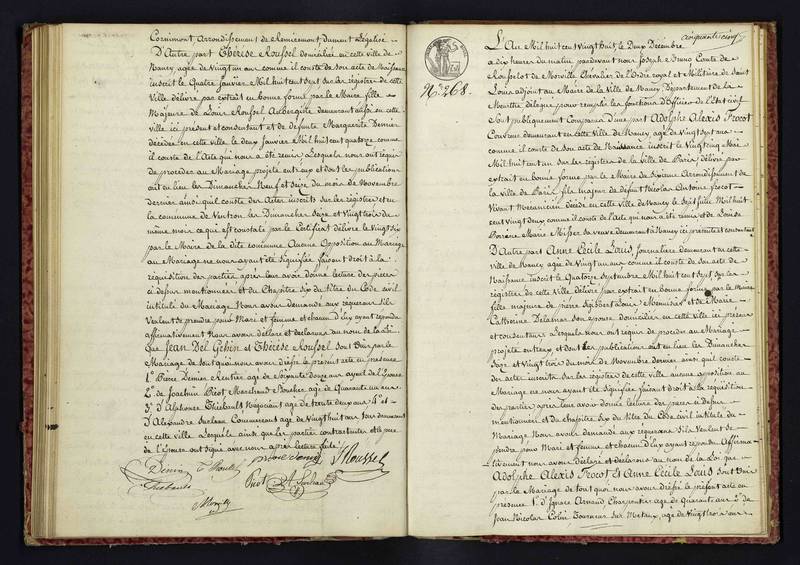 Cornimont arrondissement de Remiremont, dument Légalisé
D'Autre part Thérèse Roussel domiciliée en cette ville de
Nancy agée de vingt un ans comme il conste de son acte de Naissance
inscrit le Quatre Janvier Mil huit cent sept sur les registres de cette
Ville délivré par extrait en bonne forme par le Maire fille
Majeure de Louis Roussel Aubergiste demeurant aussi en cette
ville ici présent et consentant et de defunte Marguerite Demier
décédée en cette ville le deux Janvier Mil huit cent quatorze comme
il conste de l'acte qui nous a été remis, Lesquels nous ont requis
de procéder au Mariage projeté entr'eux et dont les publications
ont eu lieu les Dimanches Neuf et seize du mois de Novembre
dernier ainsi qu'il conste des actes inscrits sur les registres et en
la commune de Ventron les Dimanches seize et vingt trois du
même mois ce qui est constaté par le Certificat délivré le vingt six
par le Maire de la dite commune Aucune Opposition au Mariage
au Mariage ne nous ayant été signifiée faisant droit à la
réquisition des parties après leur avoir donné lecture des pièces
ci dessus mentionnées et du Chapitre six du titre du Code civil
intitulé du Mariage Nous avons demandé aux requérans s'ils
Veulent se prendre pour Mari et femme et chacun d'eux ayant répondu
affirmativement Nous avons déclaré et déclarons au nom de la Loi
Que Jean Del Gehin et Thérèse Roussel sont Unis par le
Mariage de tout quoi nous avons dressé le présent acte en présence
1° Pierre Demier Rentier agé de soixante douze ans ayeul de l'Epouse
2° de Joachim Picot Marchand Boucher agé de Quarante un ans
3° d'Alphonse Thiebault Négociant agé de trente deux ans 4° et
D'Alexandre Surleau Commerçant agé de vingt huit ans tous demeurant
en cette ville Lesquels ainsi que les parties contractantes et le père
de l'Epouse ont signé avec nous après lecture faite
Roussel
Picot
cinquante cinq
N° 268.
L'An Mil huit cent vingt huit, le Deux Décembre
a dix heures du matin pardevant nous Joseph Bruno Comte de
Rousselot de Morville Chevalier de l'Ordre royal et Militaire de Saint
Louis adjoint au Maire de la Ville de Nancy Département de la
Meurthe délégué pour remplir les fonctions d'Officier de l'Etat civil
Sont publiquement Comparus D'une part Adolphe Alexis Frocot
Couvreur demeurant en cette Ville de Nancy, agé de vingt sept ans
comme il conste de son acte de Naissance inscrit le vingt cinq Mai
Mil huit cent un sur les registres de la Ville de Paris délivré par
extrait en bonne forme par le Maire du sixième Arrondissement de
la Ville de Paris fils majeur de défunt Nicolas Antoine Frocot
Vivant Mecanicien décédé en cette ville de Nancy le sept Juillet Mil huit
cent vingt deux comme il conste de l'acte qui nous a été remis et de Louise
Marie Misser sa veuve demeurant à Nancy ici présente et consentante
D'Autre part Anne Cécile Louis journalière demeurant en cette
ville de Nancy agée de vingt un ans comme il conste de son acte de
Naissance inscrit le Quatorze Septembre Mil huit cent sept sur les
registres de cette Ville délivré par extrait en bonne forme par le Maire
fille majeure de Pierre Louis Menuisier et de Marie
Catherine Delamar son épouse domiciliés en cette ville ici présens
et consentans Lesquels nous ont requis de procéder au Mariage
projeté entr'eux et dont les publications ont eu lieu les Dimanches
Seize et Vingt trois du mois de Novembre dernier ainsi qu'il conste
des actes inscrits sur les registres de cette ville aucune opposition au
Mariage ne nous ayant été signifiée faisant droit à la réquisition
des parties après leur avoir donné lecture des pièces ci dessus
mentionnées et du chapitre six du titre du Code civil intitulé du
Mariage Nous avons demandé aux requérans S'ils Veulent se
prendre pour Mari et femme et chacun d'eux ayant répondu Affirma-
tivement Nous avons Déclaré et déclarons au nom de la Loi que
Adolphe Alexis Frocot Et Anne Cécile Louis Sont Unis
par le Mariage de tout quoi nous avons dressé le présent acte en
présence 1° d'Ignace Arnaud Charpentier agé de Quarante ans 2° de
Jean Nicolas Colin Tourneur sur Métaux, agé de Vingt trois ans